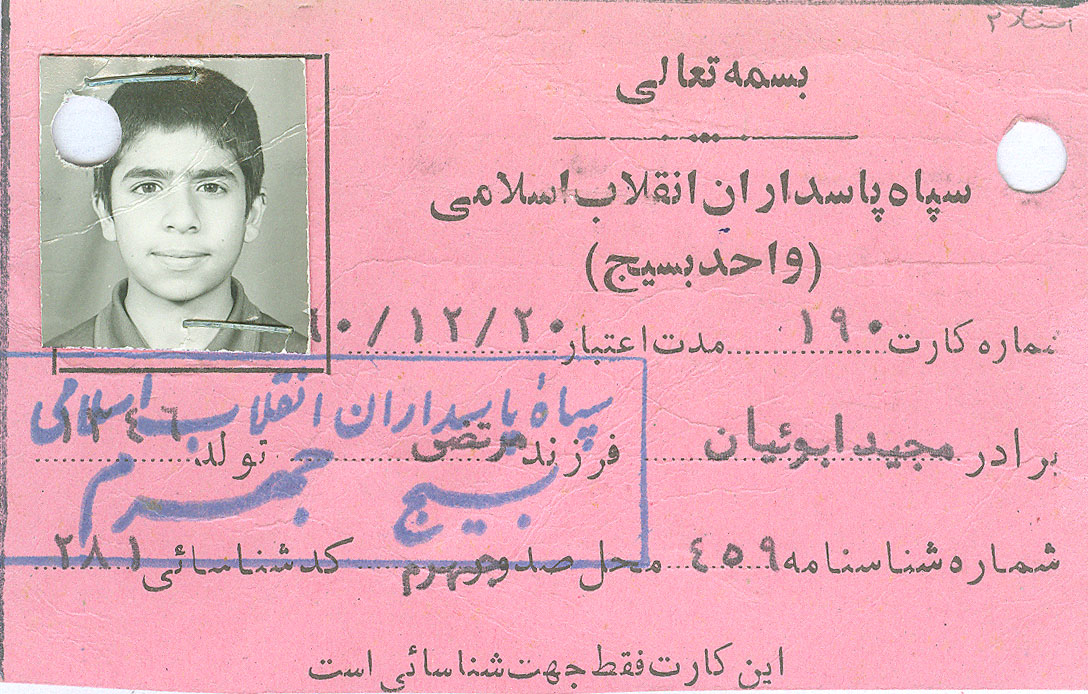 بسمه تعالی
سپاه پاسداران انقلاب اسلامی
(واحد بسیج)
شماره کارت ۱۹۰ مدت اعتبار ۶۰/۱۲/۲۰
برادر مجید ابوئیان فرزند مرتضی تولد ۱۳٤٦
سپاه پاسداران انقلاب اسلامی
بسیج جهرم
شماره شناسنامه ٤٥٩ محل صدور جهرم کد شناسائی ۲۸۱
این کارت فقط جهت شناسائی است